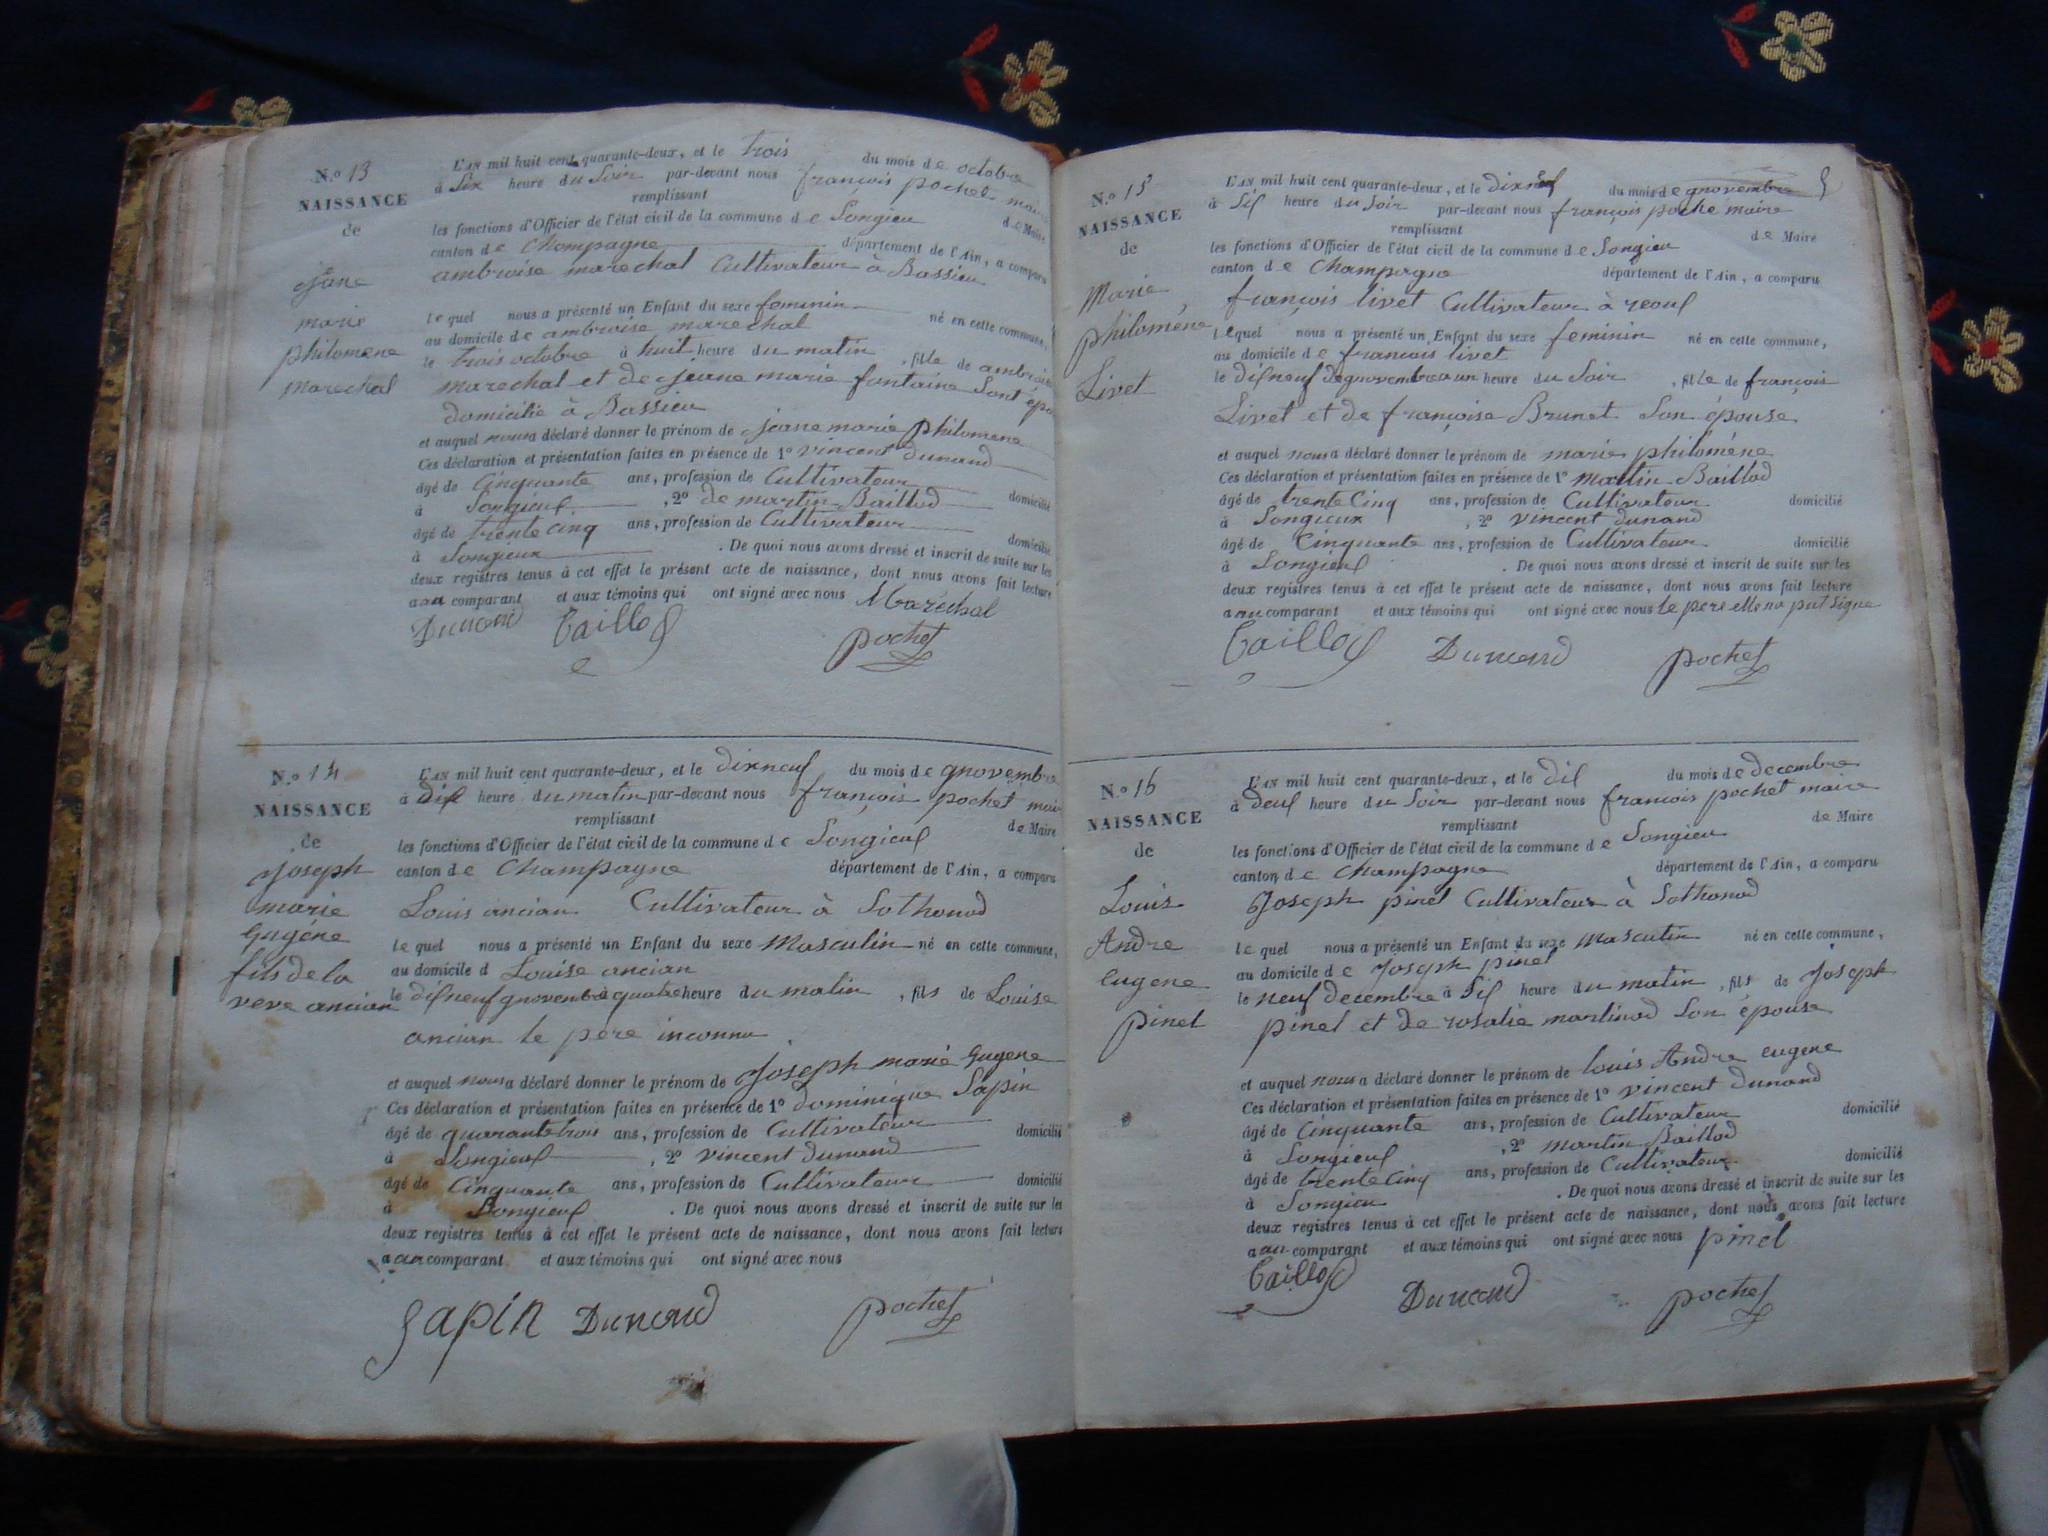 N.o 13
NAISSANCE
de
jane
marie
philomene
marechal
L'AN mil huit cent quarante-deux, et le trois du mois de octobre
à Six heure du Soir par-devant nous françois pochet maire
remplissant
les fonctions d'Officier de l'état civil de la commune de Songieu de Maire
canton de Champagne département de l'Ain, a comparu
ambroise marechal Cultivateur à Bassieu
lequel nous a présenté un Enfant du sexe feminin né en cette commune,
au domicile de ambroise marechal
le trois octobre à huit heure du matin, fille de ambroise
marechal et de jeane marie fontaine Sont épo
domicilie à Bassieu
et auquel nous a déclaré donner le prénom de jeane marie philomene
Ces déclaration et présentation faites en présence de 1o vincent dunand
âgé de Cinquante ans, profession de Cultivateur domicilié
à Songieuf, 2o de martin Baillod
âgé de trente Cinq ans, profession de Cultivateur domicilié
à Songieux. De quoi nous avons dressé et inscrit de suite sur les
deux registres tenus à cet effet le présent acte de naissance, dont nous avons fait lecture
a au comparant et aux témoins qui ont signé avec nous Maréchal
Dunand Baillod pochet
N.o 14
NAISSANCE
de
joseph
marie
Gugéne
fils de la
veve ancian
L'AN mil huit cent quarante-deux, et le dixneuf du mois de gnovembre
à dix heure du matin par-devant nous françois pochet maire
remplissant de Maire
les fonctions d'Officier de l'état civil de la commune de Songieuf
canton de Champagne département de l'Ain, a comparu
Louis ancian Cultivateur à Sothonod
lequel nous a présenté un Enfant du sexe Masculin né en cette commune,
au domicile d Louise ancian
le disneuf gnovembre à quatre heure du matin, fils de Louise
ancian le père inconnu
et auquel nous a déclaré donner le prénom de Joseph marie Gugene
Ces déclaration et présentation faites en présence de 1o dominique Sapin
âgé de quarante trois ans, profession de Cultivateur domicilié
à Songieuf, 2o vincent dunand
âgé de Cinquante ans, profession de Cultivateur domicilié
à Songieuf. De quoi nous avons dressé et inscrit de suite sur les
deux registres tenus à cet effet le présent acte de naissance, dont nous avons fait lecture
a au comparant et aux témoins qui ont signé avec nous
Sapin Dunand pochet
N.o 15
NAISSANCE
de
Marie
philoméne
Livet
L'AN mil huit cent quarante-deux, et le dixneuf du mois de gnovembre
à Sis heure du Soir par-devant nous françois poche maire
remplissant de Maire
les fonctions d'Officier de l'état civil de la commune de Songieu
canton de Champagne département de l'Ain, a comparu
françois livet Cultivateur à
lequel nous a présenté un Enfant du sexe feminin né en cette commune,
au domicile de francois livet
le disneuf gnovembre a un heure du Soir, fille de françois
Livet et de françoise Brunet Son épouse
et auquel nous a déclaré donner le prénom de marie philoméne
Ces déclaration et présentation faites en présence de 1o martin Baillod
âgé de trente Cinq ans, profession de Cultivateur domicilié
à Songieux, 2o vincent dunand
âgé de Cinquante ans, profession de Cultivateur domicilié
à Songieuf. De quoi nous avons dressé et inscrit de suite sur les
deux registres tenus à cet effet le présent acte de naissance, dont nous avons fait lecture
a au comparant et aux témoins qui ont signé avec nous le pere
Baillod Dunand pochet
N.o 16
NAISSANCE
de
Louis
Andre
eugene
pinet
L'AN mil huit cent quarante-deux, et le dis du mois de decembre
à deus heure du Soir par-devant nous francois pochet maire
remplissant de Maire
les fonctions d'Officier de l'état civil de la commune de Songieu
canton de Champagne département de l'Ain, a comparu
Joseph pinet Cultivateur à Sothonod
lequel nous a présenté un Enfant du sexe masculin né en cette commune,
au domicile de Joseph pinet
le neuf decembre à Sis heure du matin, fils de Joseph
pinet et de rosalie martinod Son épouse
et auquel nous a déclaré donner le prénom de louis Andre eugene
Ces déclaration et présentation faites en présence de 1o vincent dunand
âgé de Cinquante ans, profession de Cultivateur domicilié
à Songieuf, 2o martin Baillod
âgé de trente Cinq ans, profession de Cultivateur domicilié
à Songieu. De quoi nous avons dressé et inscrit de suite sur les
deux registres tenus à cet effet le présent acte de naissance, dont nous avons fait lecture
a au comparant et aux témoins qui ont signé avec nous pinet
Baillod Dunand pochet